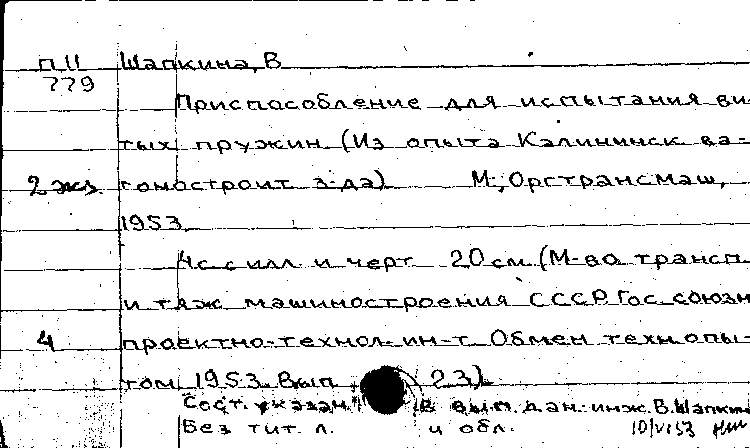 П11 Шапкина, В
779
Приспособление для испытания ви-
тых пружин (Из опыта Калининск ва-
2 экз. гоностроит з-да) М., Оргтрансмаш,
1953
4с с илл и черт 20 см (М-во трансп
и тяж машиностроения СССР. Гос. союзн
4 проектно-технол. ин-т Обмен техн опы-
том 1953. Вып 23)
Сост. указан в вып. дан: инж. В. Шапкин
Без тит. л. и обл. 10/VI53